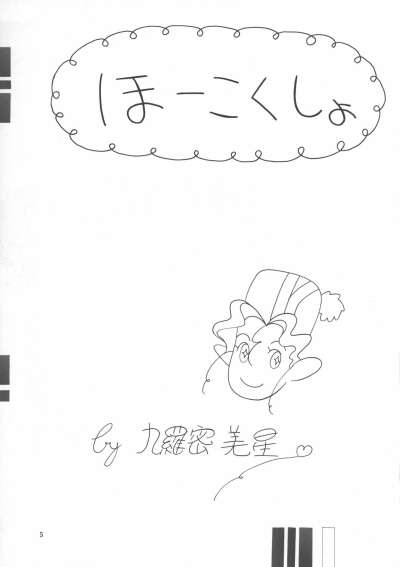 ほーこくしょ
by 九羅密美星
5